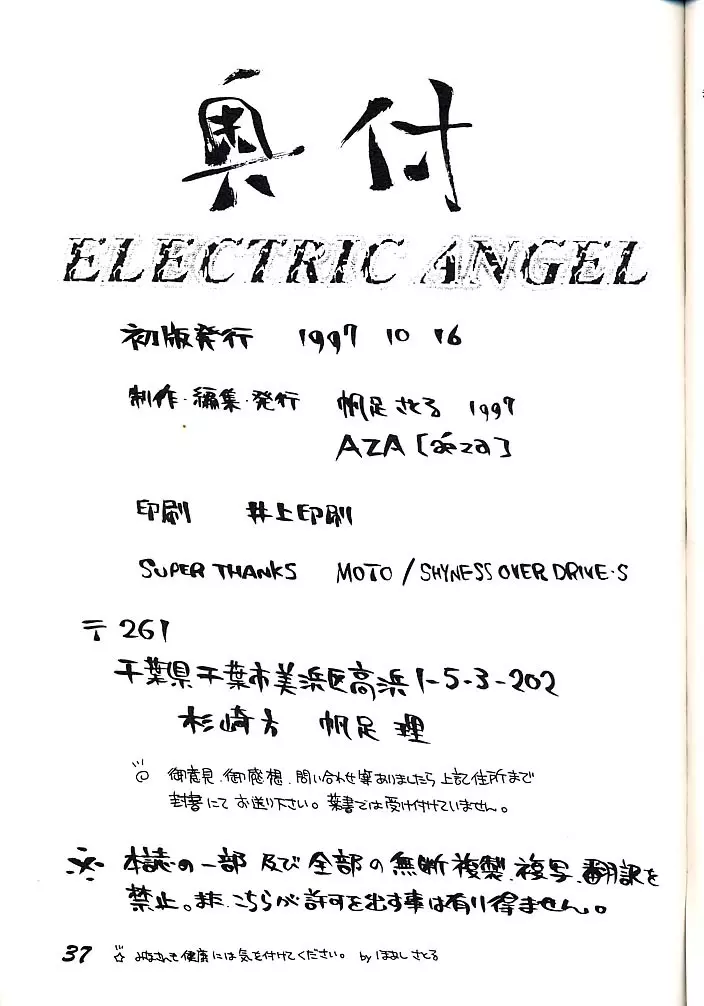 奥付
ELECTRIC ANGEL
初版発行 1997 10 16
制作・編集・発行 帆足さとる 1997
AZA [áːza]
印刷 井上印刷
SUPER THANKS MOTO / SHYNESS OVER DRIVE・S
〒261
千葉県千葉市美浜区高浜1-5-3-202
杉崎方 帆足 理
御意見、御感想、問い合わせ等ありましたら上記住所まで
封書にてお送り下さい。葉書では受け付けていません。
※ 本誌の一部及び全部の無断複製、複写、翻訳を
禁止。また、こちらが許可を出す事は有り得ません。
37 みなさんも健康には気を付けてください。 by ほあしさとる